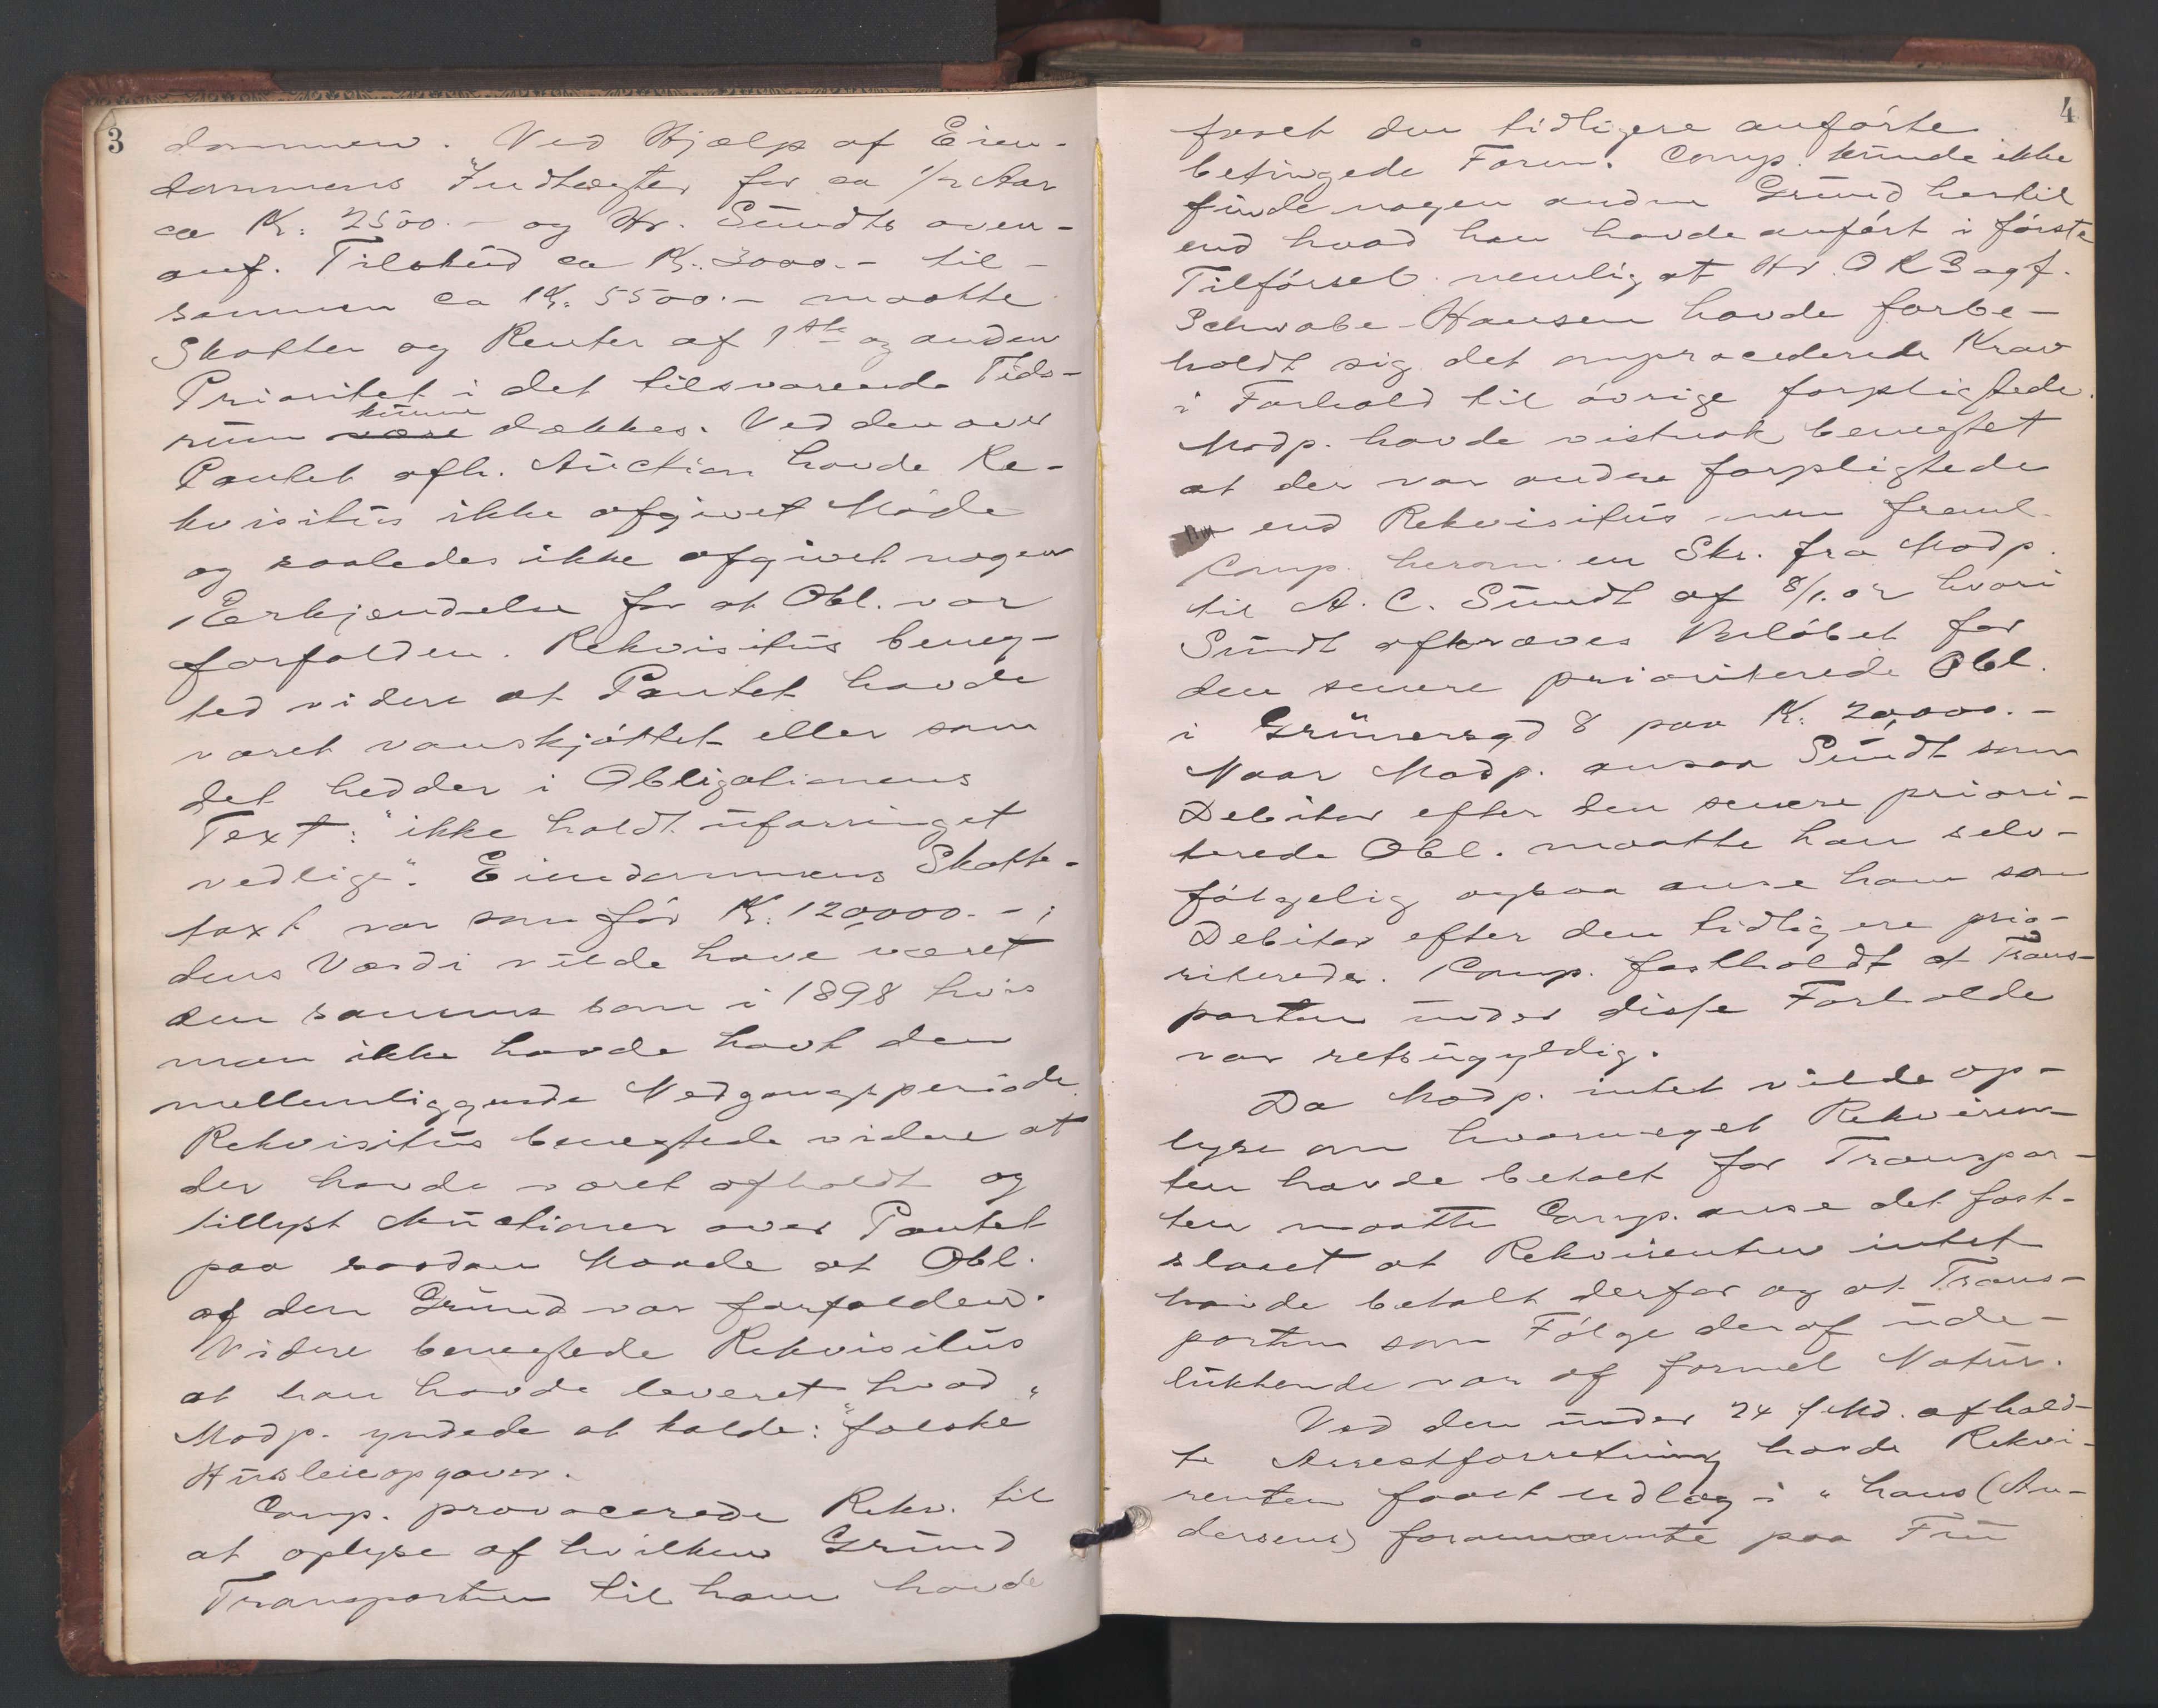 3
dommen. Ved Hjælp af Eien-
dommens Indtægter for ca 1/2 Aar
ca Kr. 2500.- og Hr. Sundts oven-
anf. Tilskud ca Kr. 3000.- til-
sammen ca Kr. 5500.- maatte
Skatter og Renter af 1ste og anden
Prioritet i det tilsvarende Tids-
rum kunne dækkes. Ved den over
Pantet afh. Auction havde Re-
kvisitus ikke afgivet Møde
og saaledes ikke afgivet nogen
Erkjendelse for at Obl. var
forfalden. Rekvisitus beneg-
ted videre at Pantet havde
været vanskjøttet eller som
det hedder i Obligationens
Text: "ikke holdt uforringet
vedlige". Eiendommens Skatte-
taxt var som før Kr. 120,000.- ;
dens Værdi vilde have været
den samme som i 1898 hvis
man ikke havde havt den
mellemliggende Nedgangsperiode.
Rekvisitus benegtede videre at
der havde været afholdt og
tillyst Auctioner over Pantet
paa saadan Maade at Obl.
af den Grund var forfalden.
Videre benegtede Rekvisitus
at han havde leveret hvad
Modp. yndede at kalde: "falske"
Husleieopgaver.
Comp. provocerede Rekv. til
at oplyse af hvilken Grund
Transporten til ham havde
4
faaet den tidligere anførte
betingede Form. Comp. kunde ikke
finde nogen anden Grund hertil
end hvad han havde anført i første
Tilførsel nemlig at Hr. O R Sagf.
Schwabe-Hansen havde forbe-
holdt sig det omprocederede Krav
i Forhold til øvrige forpligtede.
Modp. havde vistnok benegtet
at der var andre forpligtede
end Rekvisitus men freml.
Comp. herom en Skr. fra Modp.
til A. C. Sundt af 8/1.02 hvori
Sundt afkræves Beløbet for
den senere prioriterede Obl.
i Grünersgd 8 paa Kr. 20,000.-
Naar Modp. ansaa Sundt som
Debitor efter den senere priori-
terede Obl. maatte han selv-
følgelig ogsaa anse ham som
Debitor efter den tidligere prio-
riterede. Comp. fastholdt at Trans-
porten under disse Forholde
var retsugyldig.
Da Modp. intet vilde op-
lyse om hvormeget Rekviren-
ten havde betalt for Transpor-
ten maatte Comp. anse det fast-
slaaet at Rekvirenten intet
havde betalt derfor og at Trans-
porten som Følge deraf ude-
lukkende var af formel Natur.
Ved den under 24 f Md. afhold-
te Arrestforretning havde Rekvi-
renten faaet udlæg i "hans (An-
dersens) forannævnte paa Fru